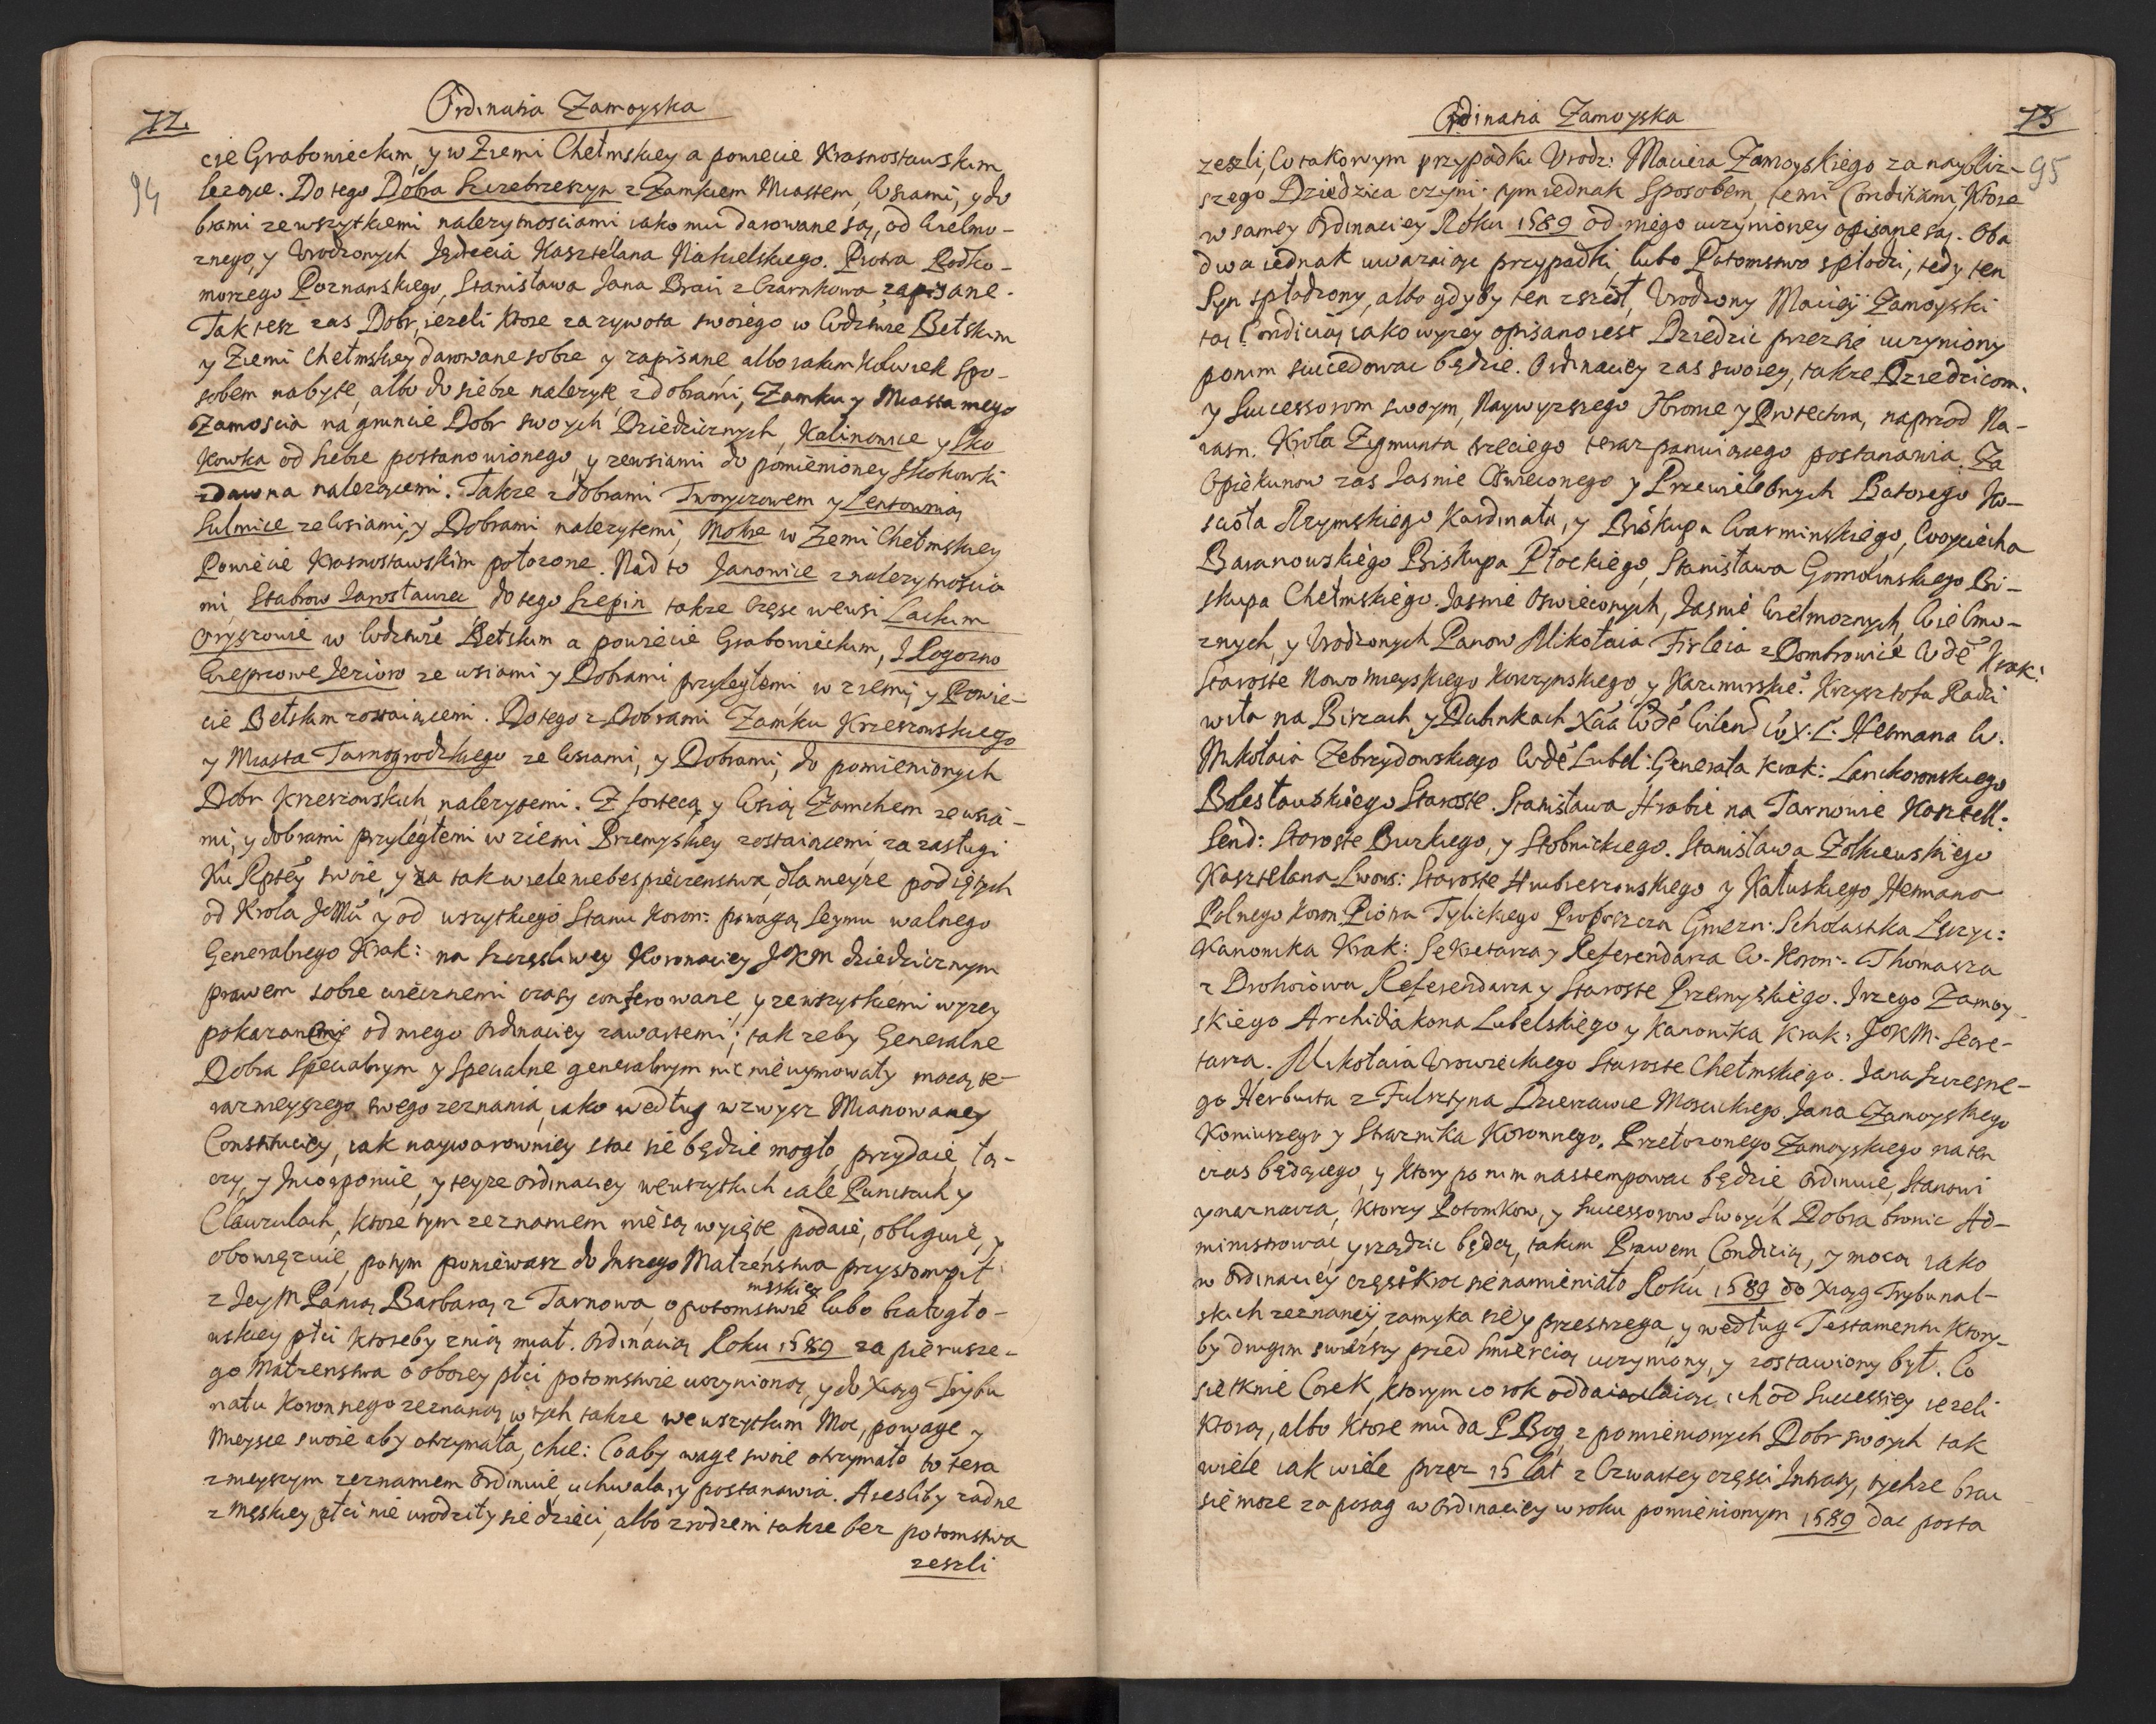 72.
Ordinatia Zamoyska
94
cie Grabowieckim, y w Ziemi Chełmskiey a powiecie Krasnostawskim
lezące. Do tego Dobra Szczebrzeszyn z Zamkiem Miastem, Wsiami, y do
brami zewszytkiemi nalezytnosciami iako mu darowane są, od Wielmo-
znego, y Urodzonych Jędrzeia Kasztelana Nakielskiego. Piotra Podko-
morzego Poznanskiego, Stanisława Jana Braci z Czarnkowa zapisane.
Tak tesz zas Dobr, iezeli Ktore za zywota swoiego w Wdztwie Bełskim
y Ziemi Chełmskiey darowane sobie y zapisane albo iakimkolwiek spo-
sobem nabyte, albo do siebie nalezyte z dobrami, Zamku y Miasta nego
Zamoscia na gruncie Dobr swoych Dziedzicznych, Kalinowice y Sko
kowka od siebie postanowionego, y zewsiami do pomienioney Skokowki
zdawna nalezącemi. Takze z dobrami Tworyczowem y Lentownią
Sulmice ze Wsiami, y Dobrami nalezytemi, Mokre w Ziemi Chełmskiey
Powiecie Krasnostawskim połozone. Nad to Janowice z nalezytnoscia
mi Stabrow Jarosławiec do tego Szepin takze Częsc wewsi Lachim
Oryszowie w Wdztwie Bełskim a powiecie Grabowieckim, J Pogozno
Wieprzowe Jezioro ze wsiami y Dobrami przyległemi w ziemi, y Powie-
cie Bełskim zostaiącemi. Do tego z Dobrami Zamku Krzeszowskiego
y Miasta Tarnogrodzkiego ze Wsiami, y Dobrami, do pomienionych
Dobr Krzeszowskich nalezytemi. Z fortecą y Wsią Zamchem ze wsia-
mi, y dobrami przyległemi w ziemi Przemyskiey zostaiącemi, za zasługi
Ku Rptey swoie, y za tak wiele niebespieczenstwa dla nieyze podiętych
od Krola JeMci y od wszytkiego Stanu Koron: powagą Seymu walnego
Generalnego Krak: na szczęsliwey Koronaciey JKM dziedzicznym
prawem sobie wiecznemi czasy conferowane, y zewszytkiemi wyzey
pokazanemi od niego Ordinaciey zawartemi; tak zeby Generalne
Dobra specialnym y specialne generalnym nic nieuymowały mocą te-
raznieyszego swego zeznania, iako według wzwysz Mianowaney
Constituciey, iak naywarowniey stac sie będzie mogło, przydaie, łą-
czy, y Incorporuie, y teyze ordinaciey wewszytkich cale Punctach y
Clauzulach, Ktore tym zeznaniem nie są wyięte podaie, obliguie, y
obowięzuie, potym poniewasz do Inszego Małzenstwa przystompił
męskiey
z JeyM Panią Barbarą z Tarnowa, o potomstwie lubo białogło-
wskiey płci Ktoreby z nią miał. Ordinacią Roku 1589 za pierwsze-
go Małzenstwa o oboiey płci potomstwie uczynioną, y do Xiąg Trybu
nału Koronnego zeznaną w tych takze wewszytkim Moc, powagę y
Mieysce swoie aby otrzymała, chce: Co aby wagę swoie otrzymało to tera
znieyszym zeznaniem ordinuie, uchwala, y postanawia. A iesliby zadne
z Męskiey płci nie urodziły sie dzieci, albo zrodzeni takze bez potomstwa
zeszli
Ordinatia Zamoyska
73
95
zeszli, W takowym przypadku Urodz: Macieia Zamoyskiego za naybliz-
szego Dziedzica czyni; tym iednak sposobem, temi Conditiami, Ktore
w samey Ordinaciey Roku 1589 od niego uczynioney opisane są. Oba
dwa iednak uwazaiąc przypadki, lubo Potomstwo spłodzi, tedy ten
Syn spłodzony, albo gdyby ten zszedł, Urodzony Maciey Zamoyski
tą Condicią iako wyzey opisano iest Dziedzic przezsię uczyniony
ponim succedowac będzie. Ordinaciey zas swoiey, takze Dziedzicom
y Successorom swoym, Naywyzszego Obronie y Protectora, naprzod Na-
iasn. Krola Zygmunta trzeciego teraz panuiącego postanawia. Za
Opiekunow zas Jasnie Oswieconego y Przewielebnych Batorego Ko-
scioła Rzymskiego Kardinała, y Biskupa Warminskiego, Woyciecha
Baranowskiego Biskupa Płockiego, Stanisława Gomolinskiego Bi-
skupa Chełmskiego. Jasnie Oswieconych, Jasnie Wielmoznych, Wielmo-
znych, y Urodzonych Panow Mikołaia Firleia z Dombrowice Wdę Krak:
Staroste Nowomieyskiego Korczynskiego, y Kazimirskie. Krzysztofa Radzi
wiła na Birzach y Dubinkach Xcia Wdę Wilens W.X.L. Hetmana W.
Mikołaia Zebrzydowskiego Wdę Lubel: Generała Krak: Lanckoronskiego
Bolesławskiego Staroste. Stanisława Hrabie na Tarnowie Kasztell:
Send: Staroste Buskiego, y Stobnickiego. Stanisława Zołkiewskiego
Kasztelana Lwows: Staroste Hrubieszowskiego y Kałuskiego Hetmana
Polnego Koron. Piotra Tylickiego Proboszcza Gniezn: Scholastika Łęczyc:
Kanonika Krak: Sekretarza y Referendarza W. Koron:. Thomasza
z Drohoiowa Referendarza y Staroste Przemyskiego. Jrzego Zamoy
skiego Archidiakona Lubelskiego y Kanonika Krak: JoKM. Secre-
tarza. Mikołaia Urowieckiego Staroste Chełmskiego. Jana Szczesne-
go Herburta z Fulsztyna Dzierzawce Mosciskiego Jana Zamoyskiego
Koniuszego y Straznika Koronnego. Przełozonego Zamoyskiego na ten
czas będącego, y Ktory po nim nastempowac będzie ordinuie, Stanowi
y naznacza, Ktorzy Potomkow, y Successorow Swoych Dobra bronic Ad-
ministrowac, y rządzic będą, takim Prawem, Condicią, y mocą iako
w Ordinaciey częstokroc sie namieniało Roku 1589 do Xiąg Trybunal-
skich zeznaney zamyka sie y przestrzega, y według Testamentu Ktory-
by drugim swieszy przed smiercią uczyniony, y zostawiony był. Co
sie tknie Corek, Ktorym co rok ich od Successiey iezeli
Ktorą, albo Ktore mu da P Bog, z pomienionych Dobr swoych tak
wiele iak wiele przez 15 lat z Czwartey częsci Intraty, tychze brac
sie moze za posag w Ordinaciey w roku pomienionym 1589 dac posta